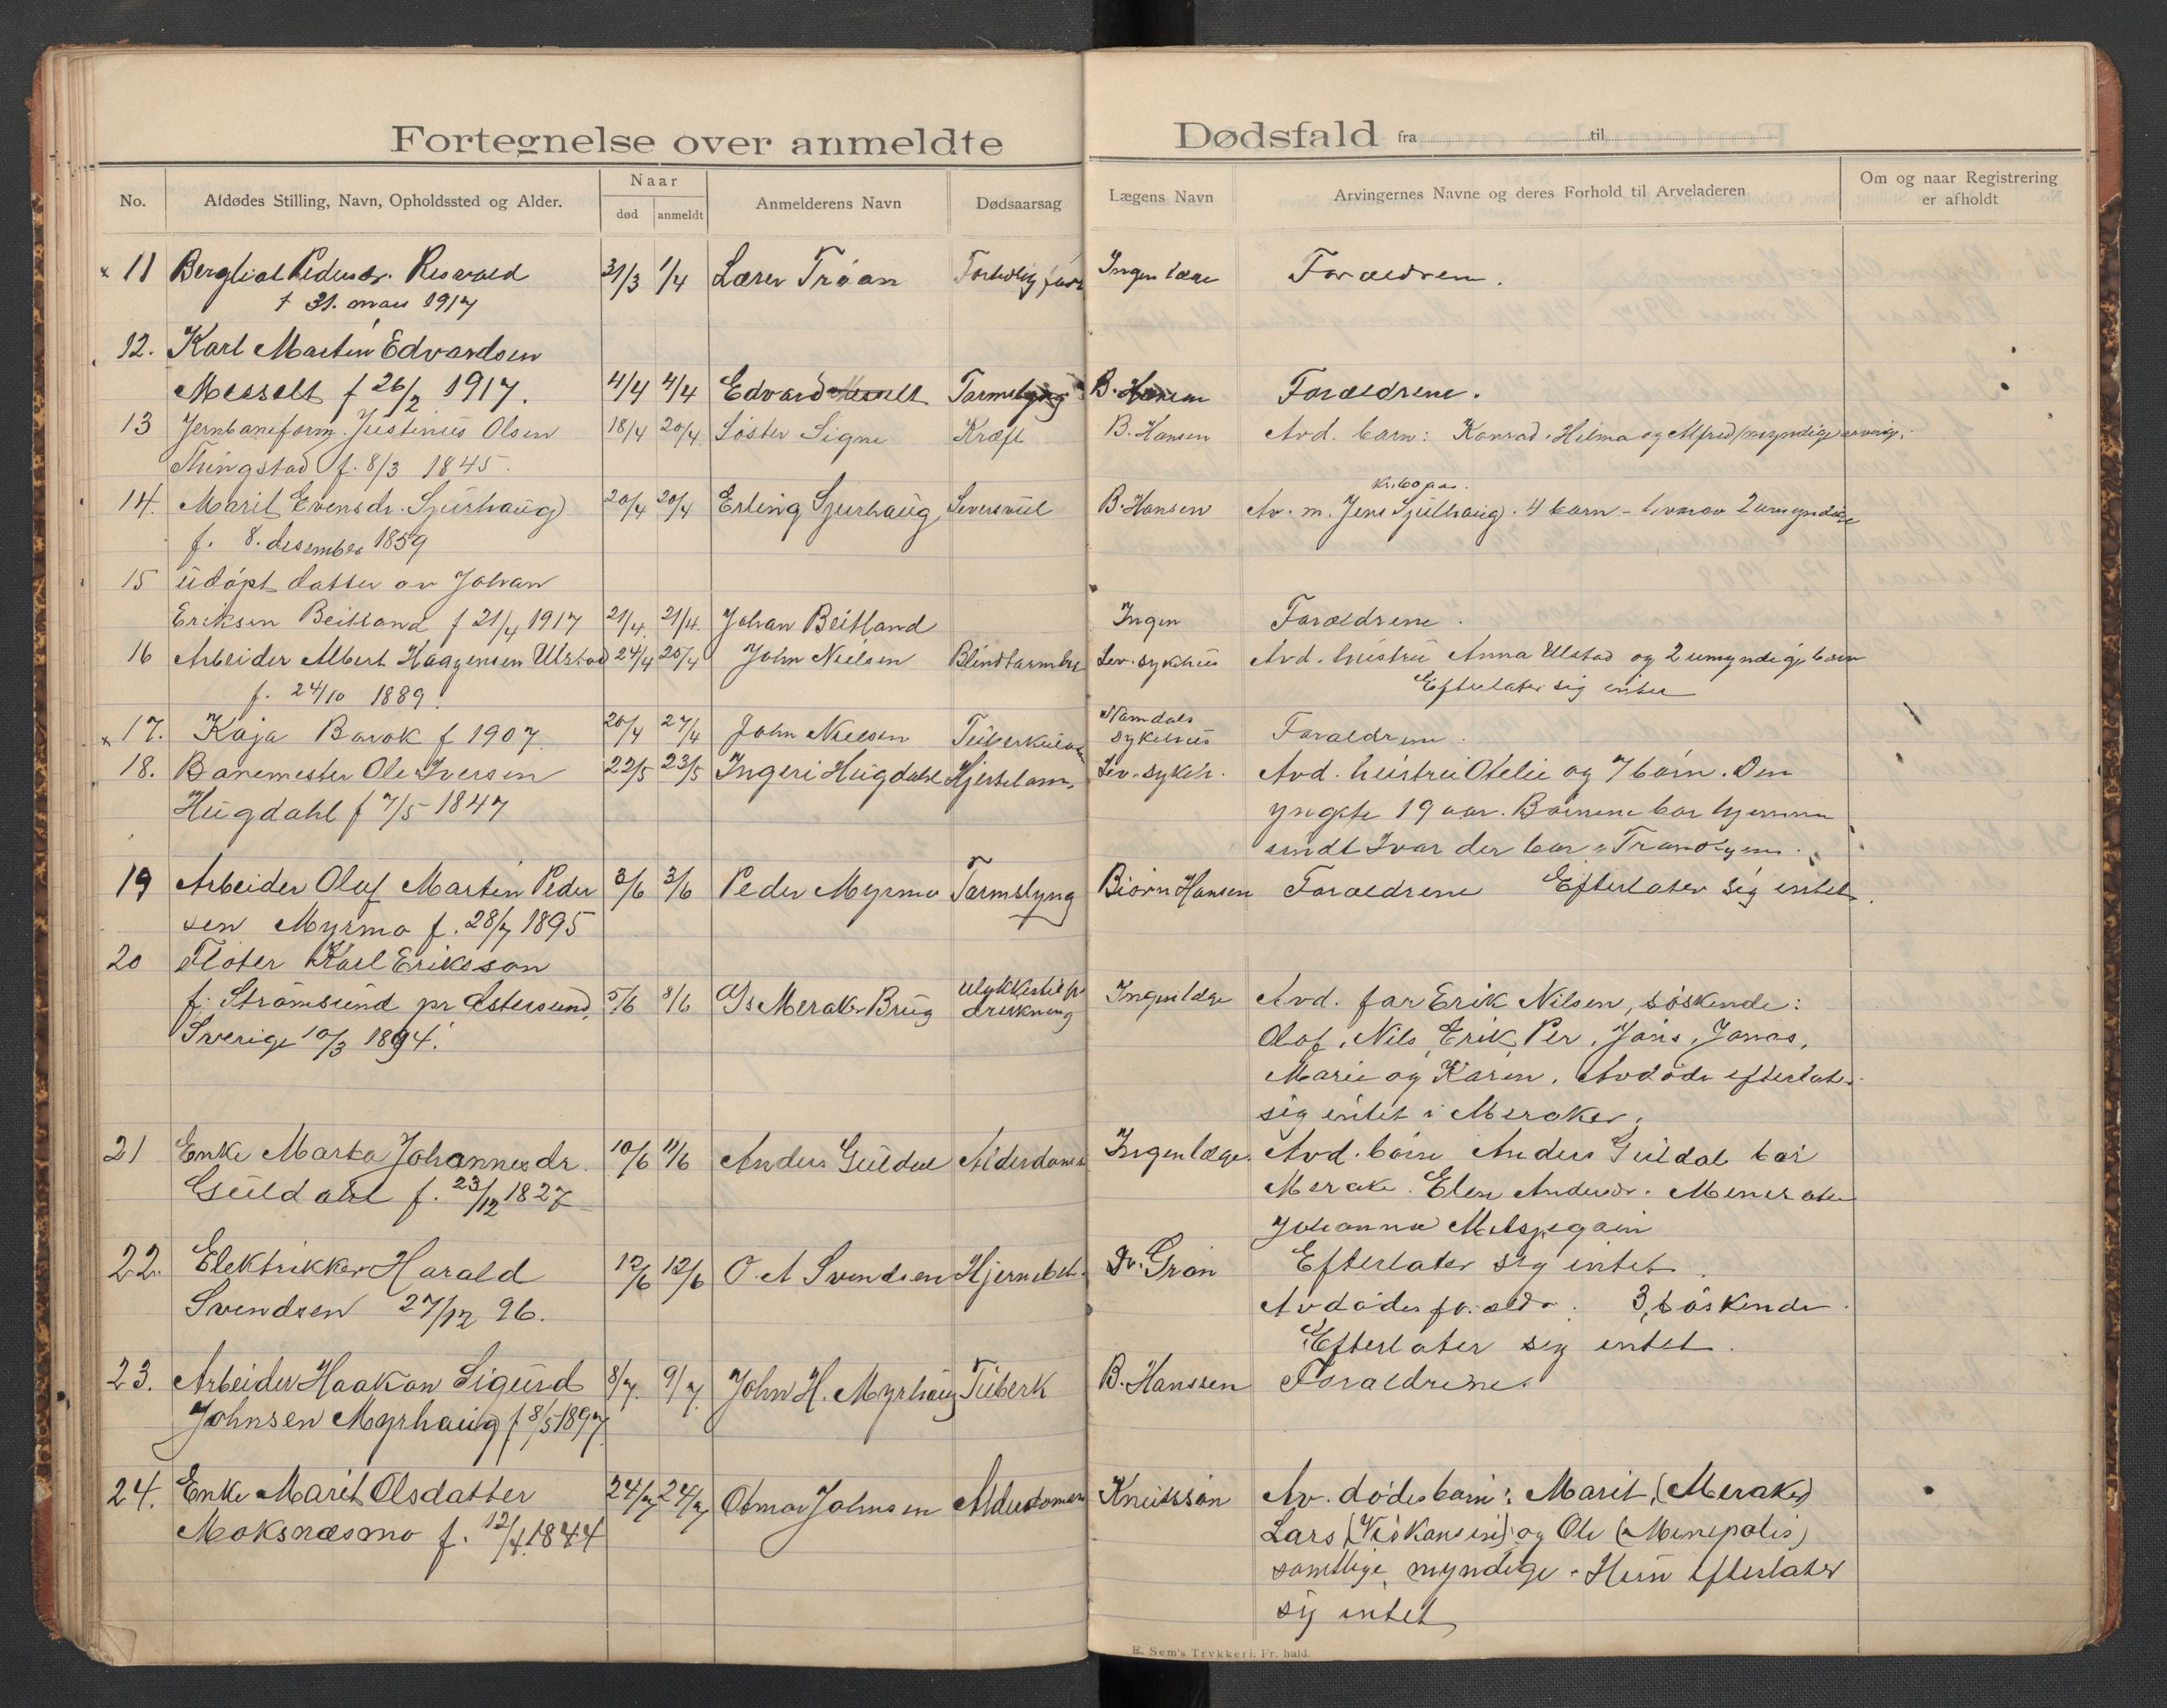 Fortegnelse over anmeldte Dødsfald fra til
No. Afdødes Stilling, Navn, Opholdssted og Alder. Naar død anmeldt Anmelderens Navn Dødsaarsag Lægens Navn Arvingernes Navne og deres Forhold til Arveladeren Om og naar Registrering er afholdt
x 11 Bergliot Pedersdr. 31/3 1/4 Lærer Trøan Ingen læge Forældrene.
31. mars 1917
12. Karl Martin Edvardsen
Messelt f 26/2 1917. 4/4 4/4 Edvard Messelt Tarmslyng B. Hansen Forældrene.
13 Jernbaneform. Justinus Olsen 18/4 20/4. Søster Signe Kræft B. Hansen Avd. barn: Konrad, Hilma og Alfred
Thingstad f. 8/3 1845.
14. Marit Evensdr. Sjurhaug 20/4 20/4 Erling Sjurhaug B. Hansen Av. m. Jens 4 barn - hvorav 2 umyndige
f. 8. desember 1859
15 udøpt datter av Johan
Eriksen Beitland f 21/4 1917 21/4. 21/4. Johan Beitland Ingen Forældrene.
16 Arbeider Albert Haagensen Ulstad 24/4 25/4 John Nielsen Blindtarmbet Lev. sykehus Avd. hustru Anna Ulstad og 2 umyndige barn
f. 24/10 1889. Efterlater sig intet
x 17. Kaja Barok f 1907. 20/4 27/4 John Nielsen Tuberkulose Namdals sykehus Forældrene.
18. Banemester Ole Iversen 22/5 23/5 Ingeri Hugdahl Hjertelam. Lev. sykeh. Avd. hustru Otelie og 7 børn. Den
Hugdahl f 7/5 1847 yngste 19 aar. Børnene bor hjemme
undt Ivar der bor
19 Arbeider Olaf Martin Peder 3/6 3/6 Peder Myrmo Tarmslyng Bjørn Hansen Forældrene Efterlater sig intet.
sen Myrmo f. 28/7 1895
20 Fløter Karl Eriksson
f. Strømsund pr Østersund, 5/6 8/6 A/s Meraker Brug Ulykkestilf drukning Ingen læge Avd. far Erik Nilsen, søskende:
Sverige 10/3 1894. Olof, Nils, Erik, Per, Jøns, Jonas,
Marie og Karin. Avdøde efterlater
sig intet i Meraker.
21 Enke Marta Johannesdr. 10/6 11/6 Anders Guldal Alderdoms Ingen læge. Avd. børn Anders Guldal bor
Guldahl f. 23/12 1827 Meraker. Elen Andersdr.
Johanna
22. Elektrikker Harald 12/6 12/6 O. A Svendsen Hjernebet. Dr. Grøn Efterlater sig intet.
Svendsen 27/12 96. Avdødes foræld. 3 søskende.
Efterlater sig intet.
23. Arbeider Haakon Sigurd 8/7. 9/7. John H. Myrhaug Tuberk B. Hanssen Forældrene.
Johnsen Myrhaug f 8/5 1897
24. Enke Marit Olsdatter 24/7 24/7 Otmar Johnsen Alderdoms Knutsson Av. dødes barn: Marit, (Meraker)
Moksnæsmo f. 12/4. 1844 Lars (Viskonsin) og Ole (Minepolis)
samtlige myndige. Hun efterlater
sig intet
E. Sem's Trykkeri. Fr. hald.